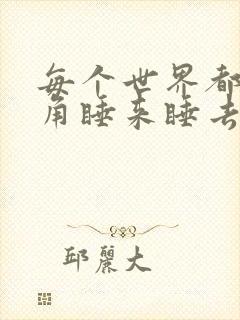 每个世界都
角睡来睡去
邱丽大